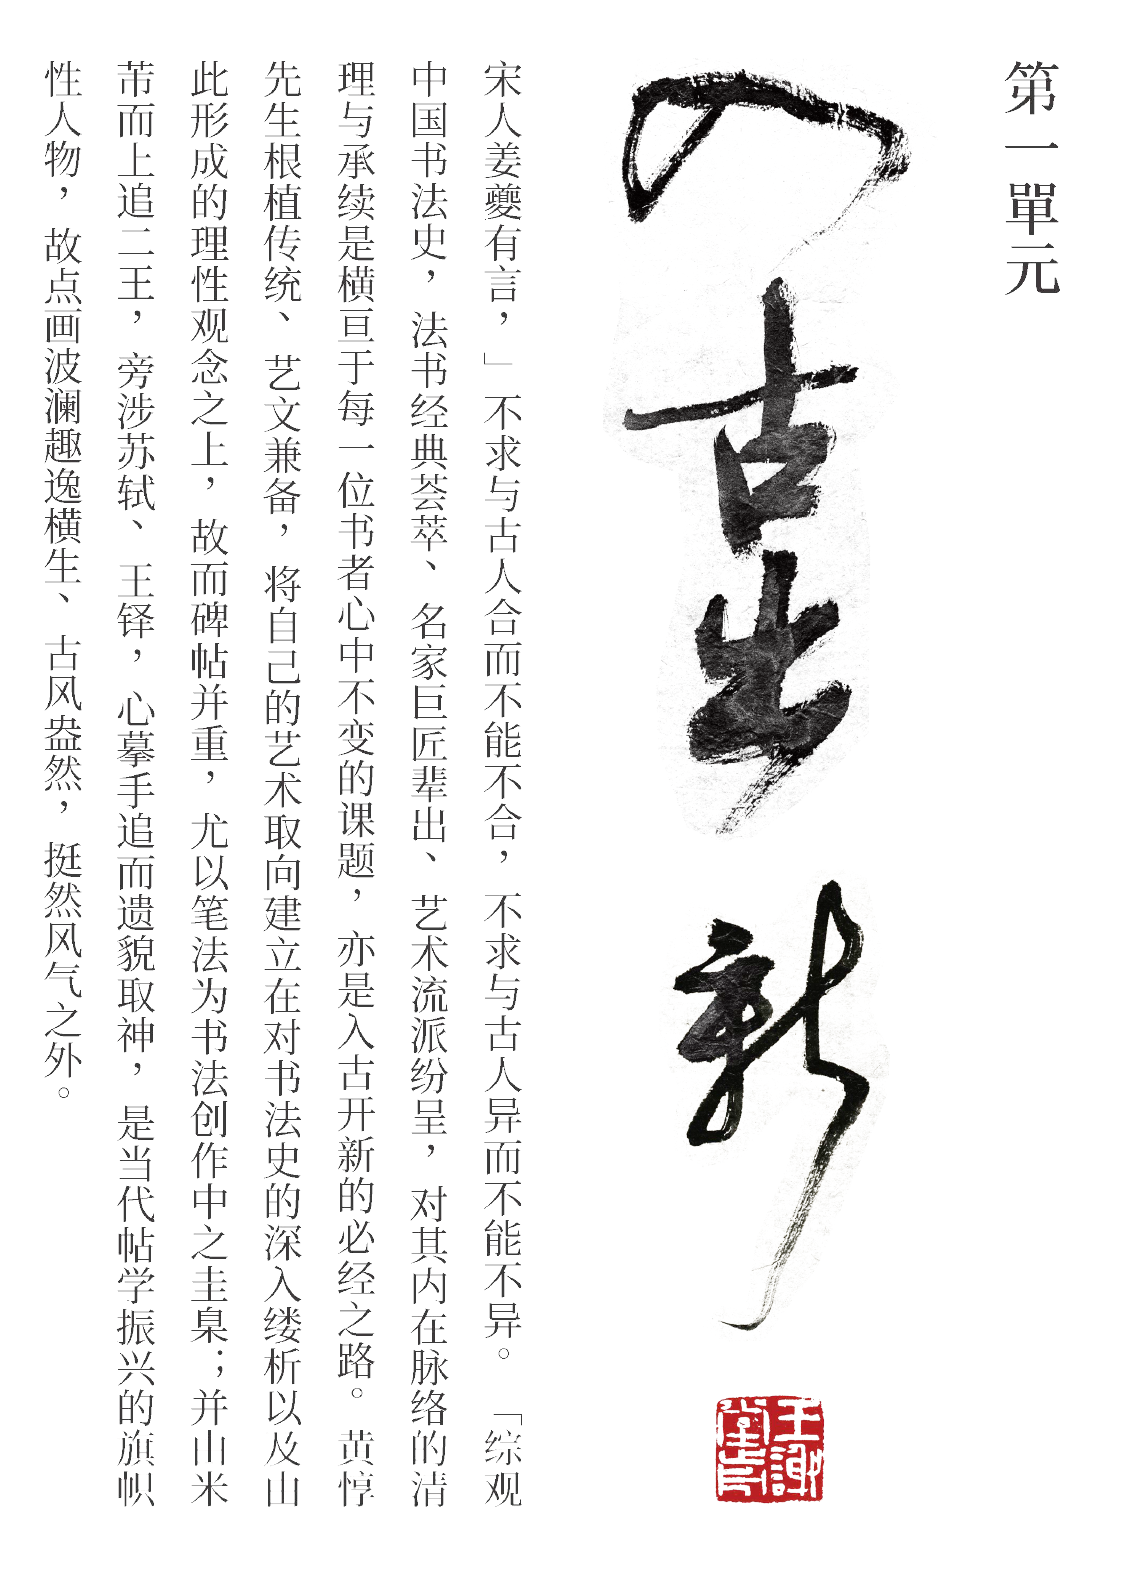 第一單元
入古出新
王謝
堂
宋人姜夔有言，」不求与古人合而不能不合，不求与古人异而不能不异。「综观
中国书法史，法书经典荟萃、名家巨匠辈出、艺术流派纷呈，对其内在脉络的清
理与承续是横亘于每一位书者心中不变的课题，亦是入古开新的必经之路。黄惇
先生根植传统、艺文兼备，将自己的艺术取向建立在对书法史的深入缕析以及由
此形成的理性观念之上，故而碑帖并重，尤以笔法为书法创作中之圭臬；并由米
芾而上追二王，旁涉苏轼、王铎，心摹手追而遗貌取神，是当代帖学振兴的旗帜
性人物，故点画波澜趣逸横生、古风盎然，挺然风气之外。